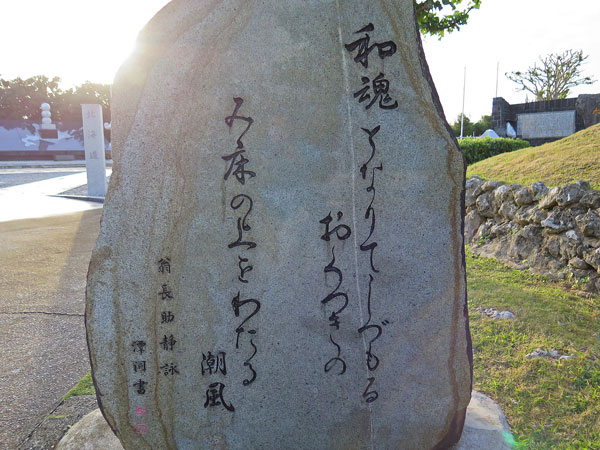 和魂となりてしづもる
おくつきの
み床の上をわたる
潮風
翁長助静詠
澤洞書
北海道